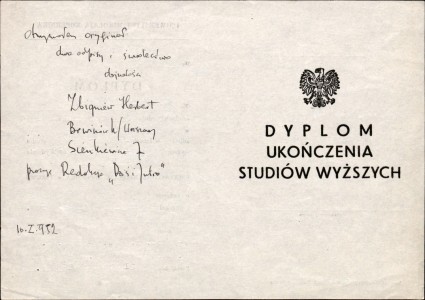 otrzymałem oryginał
dwa odpisy i świadectwo
dojrzałości
Zbigniew Herbert
Brwinów / Warszawy
Sienkiewicza 7
"Dziś i Jutro"
10.I.1952
DYPLOM
UKOŃCZENIA
STUDIÓW WYŻSZYCH